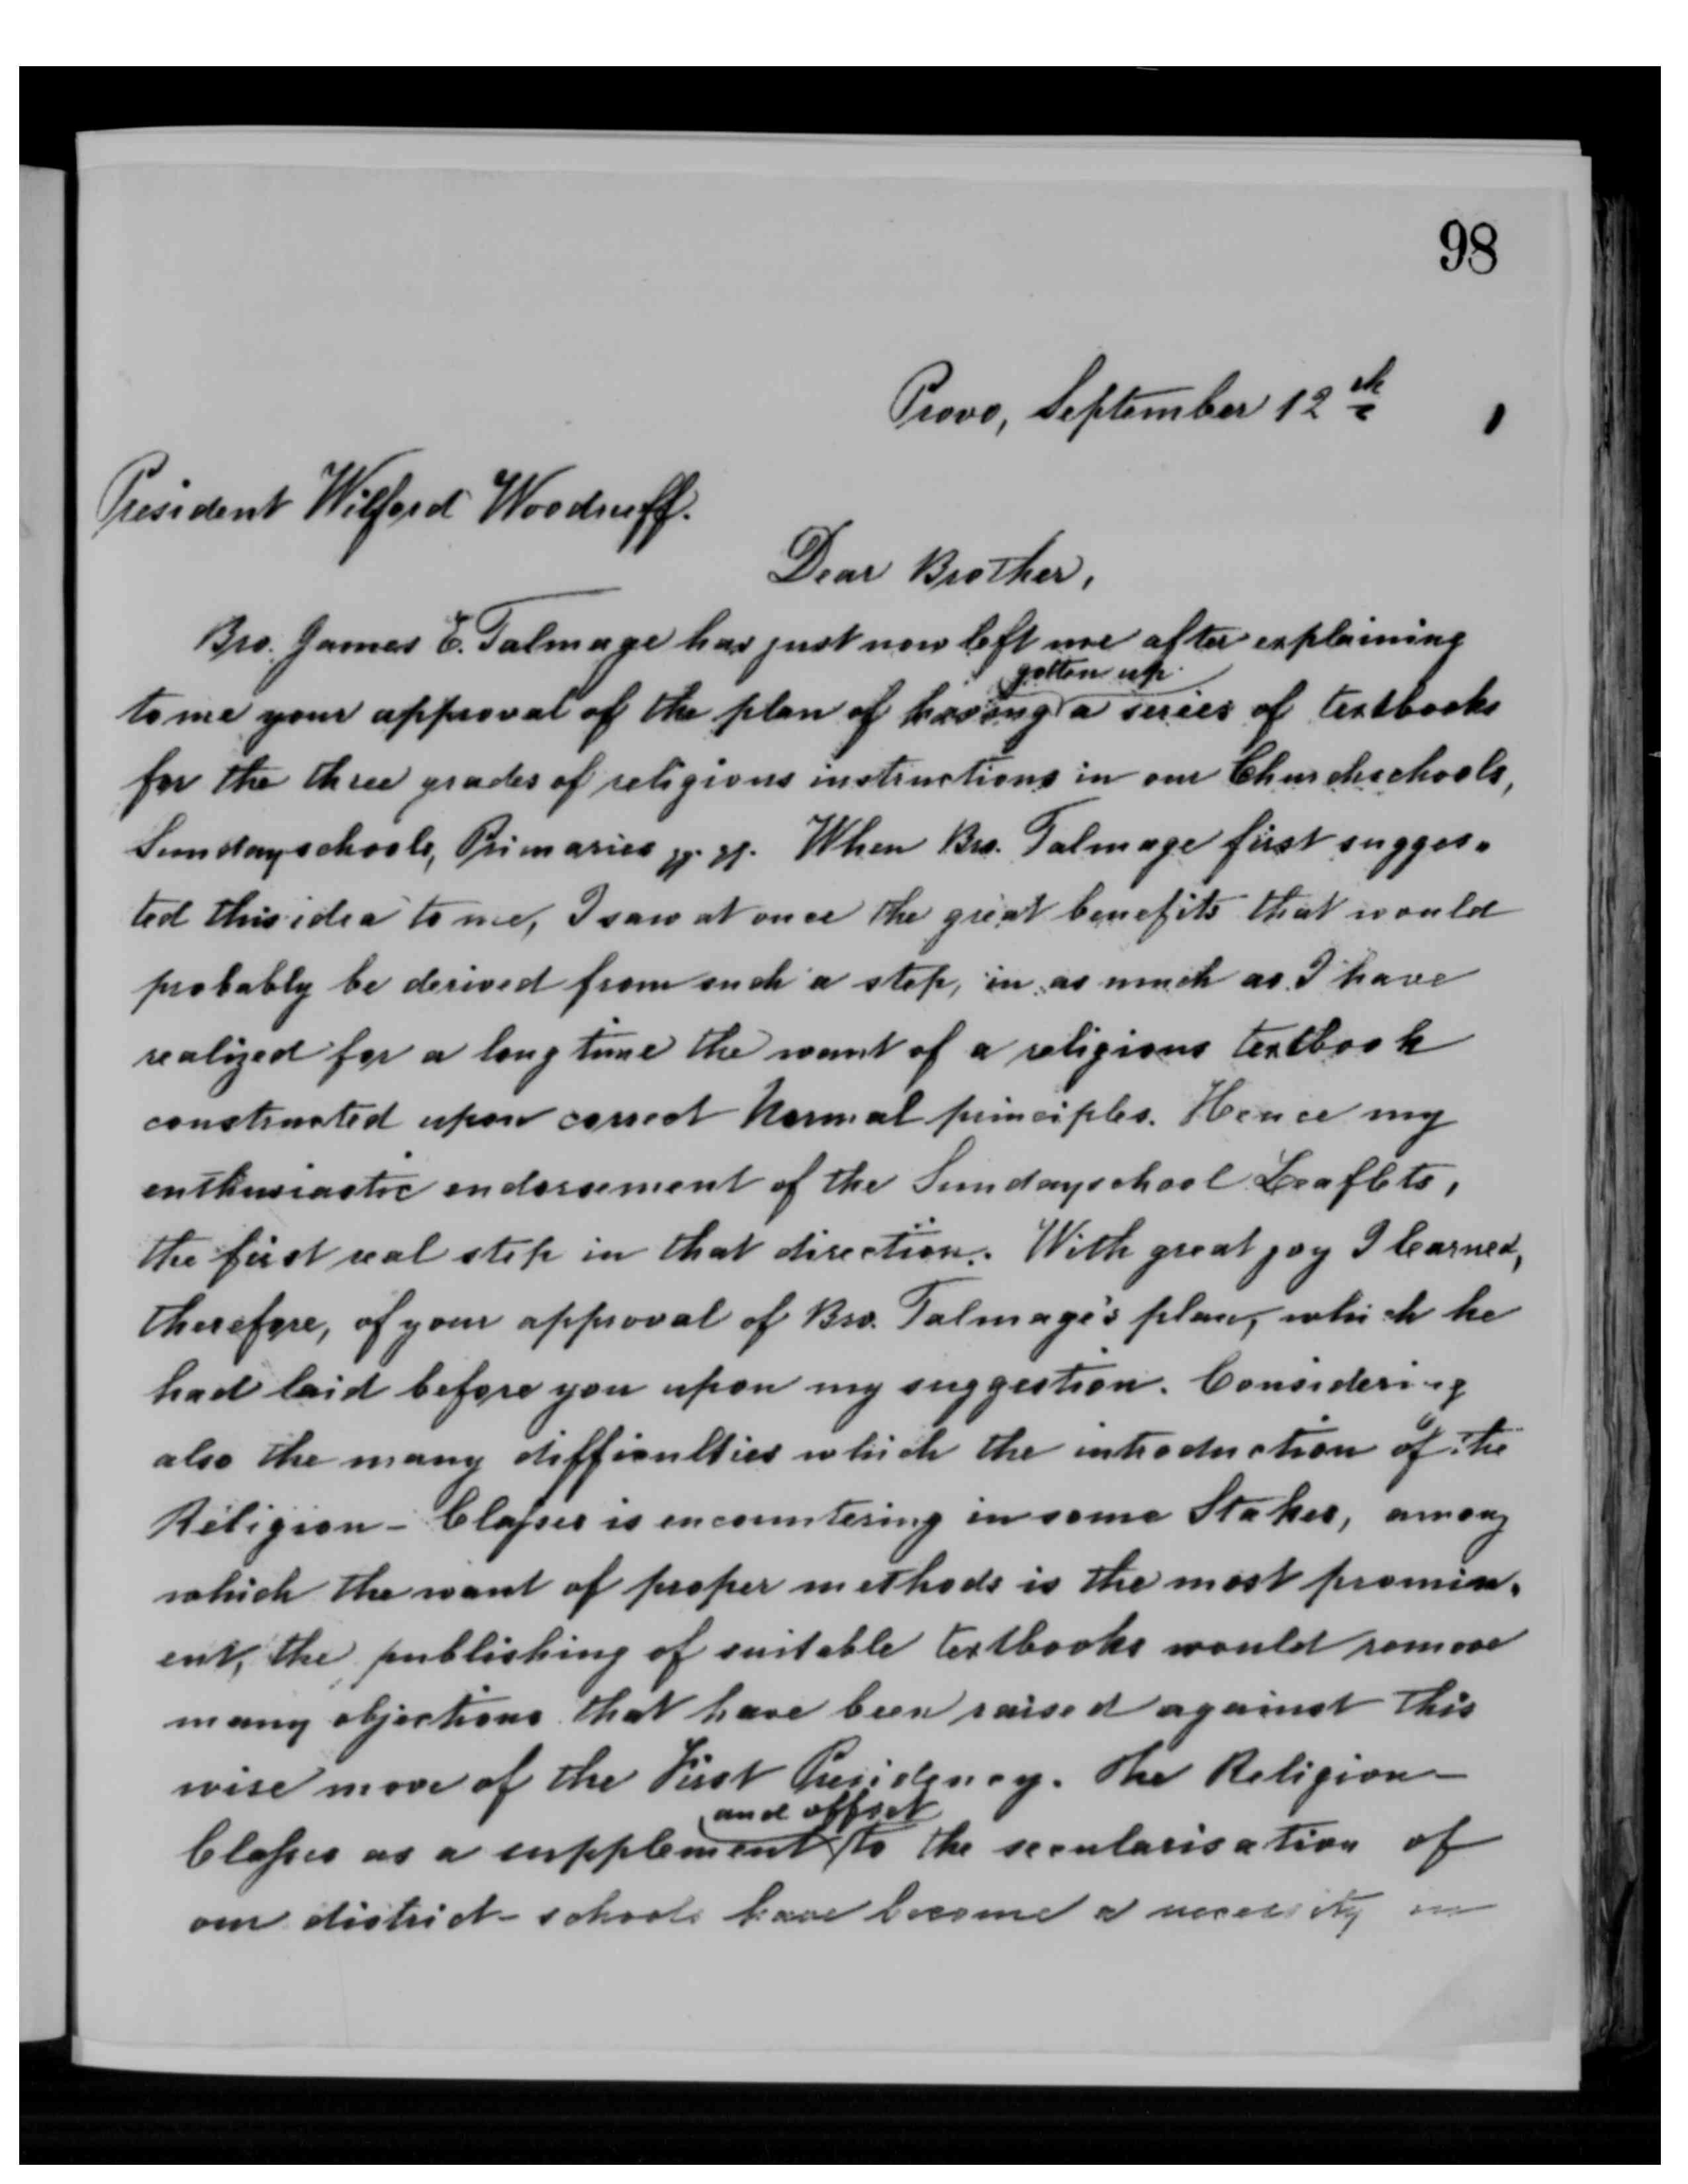 98
Provo, September 12th
President Wilford Woodruff.
Dear Brother,
Bro. James E. Talmage has just now left me after explaining
gotten up
to me your approval of the plan of having a series of textbooks
for the three grades of religious instructions in our Churchschools,
Sundayschools, Primaries When Bro. Talmage first sugges-
ted this idea to me, I saw at once the great benefits that would
probably be derived from such a step, in as much as I have
realized for a long time the want of a religious textbook
constructed upon correct Normal principles. Hence my
enthusiastic endorsement of the Sundayschool Leaflets,
the first real step in that direction. With great joy I learned,
therefore, of your approval of Bro. Talmage's plan, which he
had laid before you upon my suggestion. Considering
also the many difficulties which the introduction of the
Religion-Classes is encountering in some Stakes, among
which the want of proper methods is the most promin-
ent, the publishing of suitable textbooks would remove
many objections that have been raised against this
wise move of the First Presidency. The Religion-
and offset
Classes as a supplement to the secularisation of
our district-schools have become a necessity